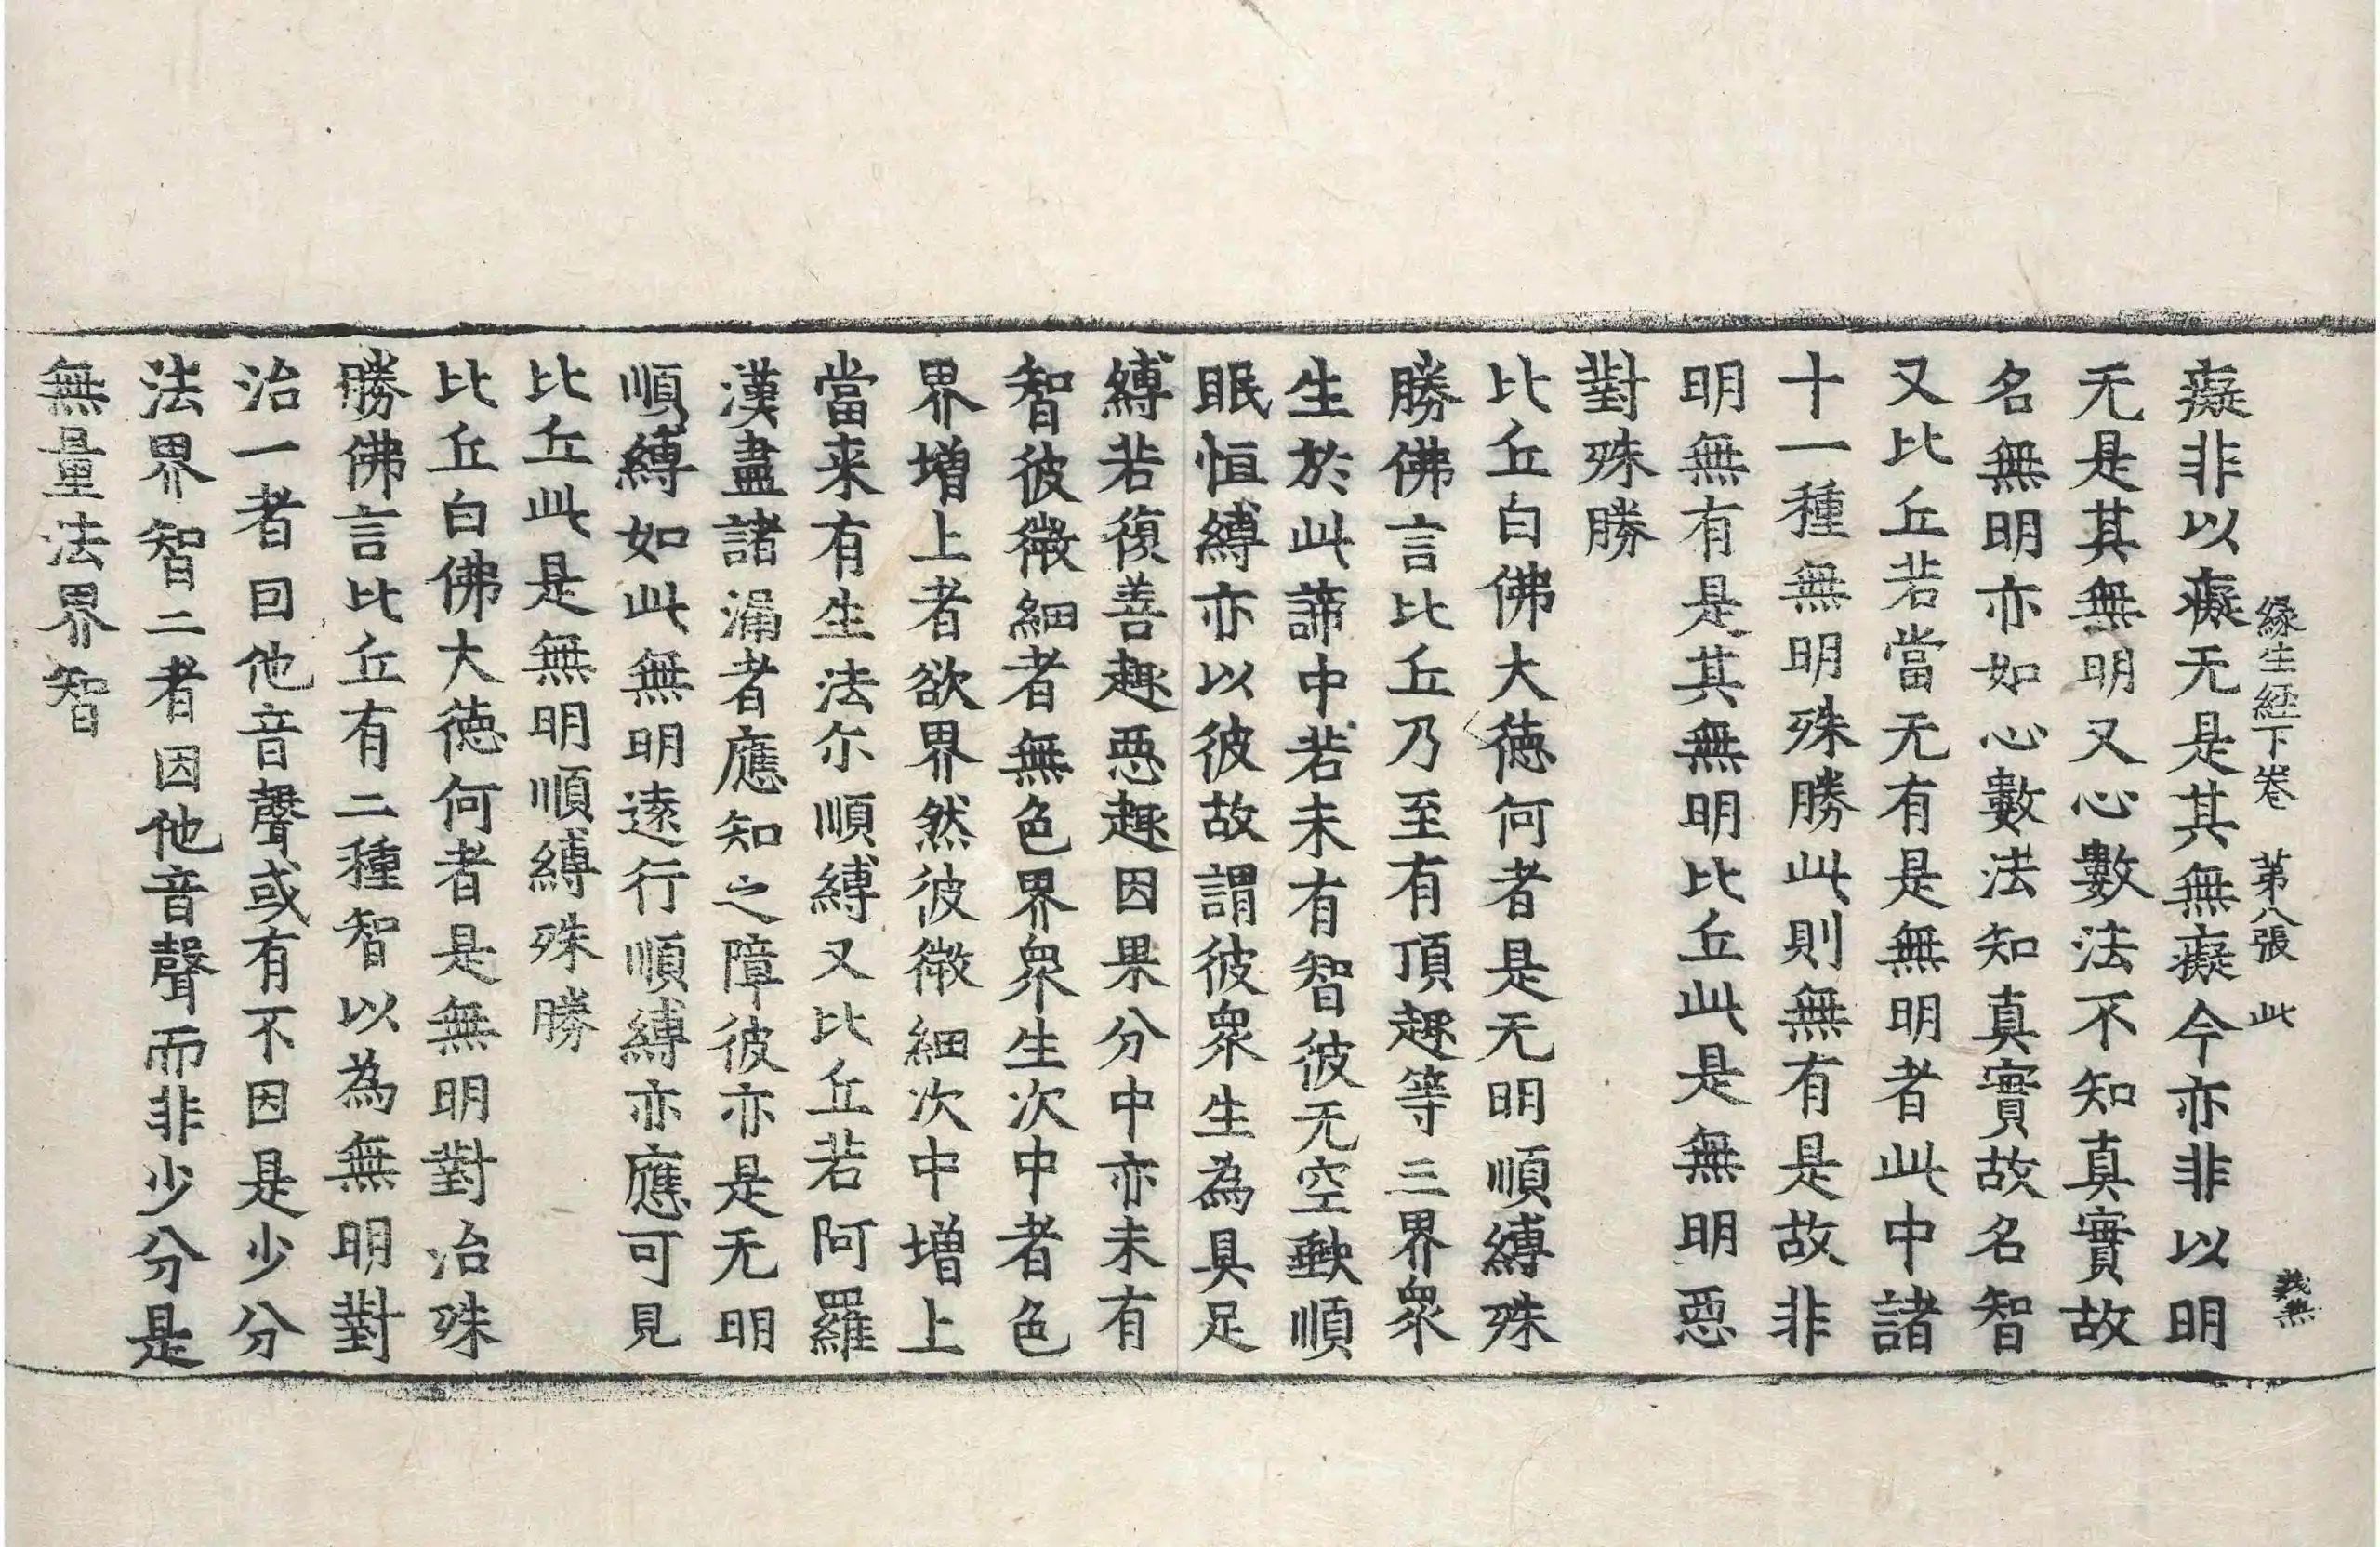 緣生經下卷　第八張　此
義無
癡非以癡无是其無癡今亦非以明
无是其無明又心數法不知真實故
名無明亦如心數法知真實故名智
又比丘若當无有是無明者此中諸
十一種無明殊勝此則無有是故非
明無有是其無明比丘此是無明惡
對殊勝
比丘白佛大德何者是无明順縛殊
勝佛言比丘乃至有頂趣等三界眾
生於此諦中若未有智彼无空缺順
眠恒縛亦以彼故謂彼眾生為具足
縛若復善趣惡趣因果分中亦未有
智彼微細者無色界眾生次中者色
界增上者欲界然彼微細次中增上
當来有生法尓順縛又比丘若阿羅
漢盡諸漏者應知之障彼亦是无明
順縛如此無明遠行順縛亦應可見
比丘此是無明順縛殊勝
比丘白佛大德何者是無明對治殊
勝佛言比丘有二種智以為無明對
治一者因他音聲或有不因是少分
法界智二者因他音聲而非少分是
無量法界智